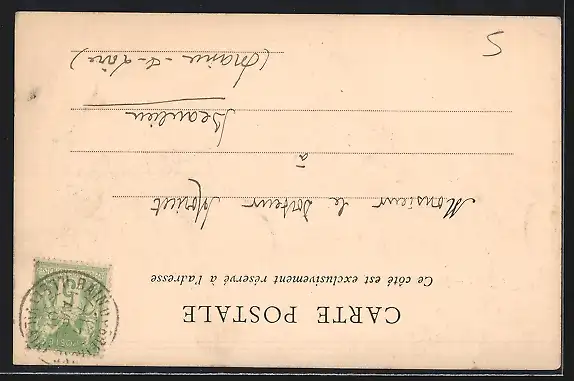 CARTE POSTALE
Ce côté est exclusivement réservé à l'adresse
Monsieur le docteur Moricet
à
Beaulieu
(Maine-&-Loire)
5